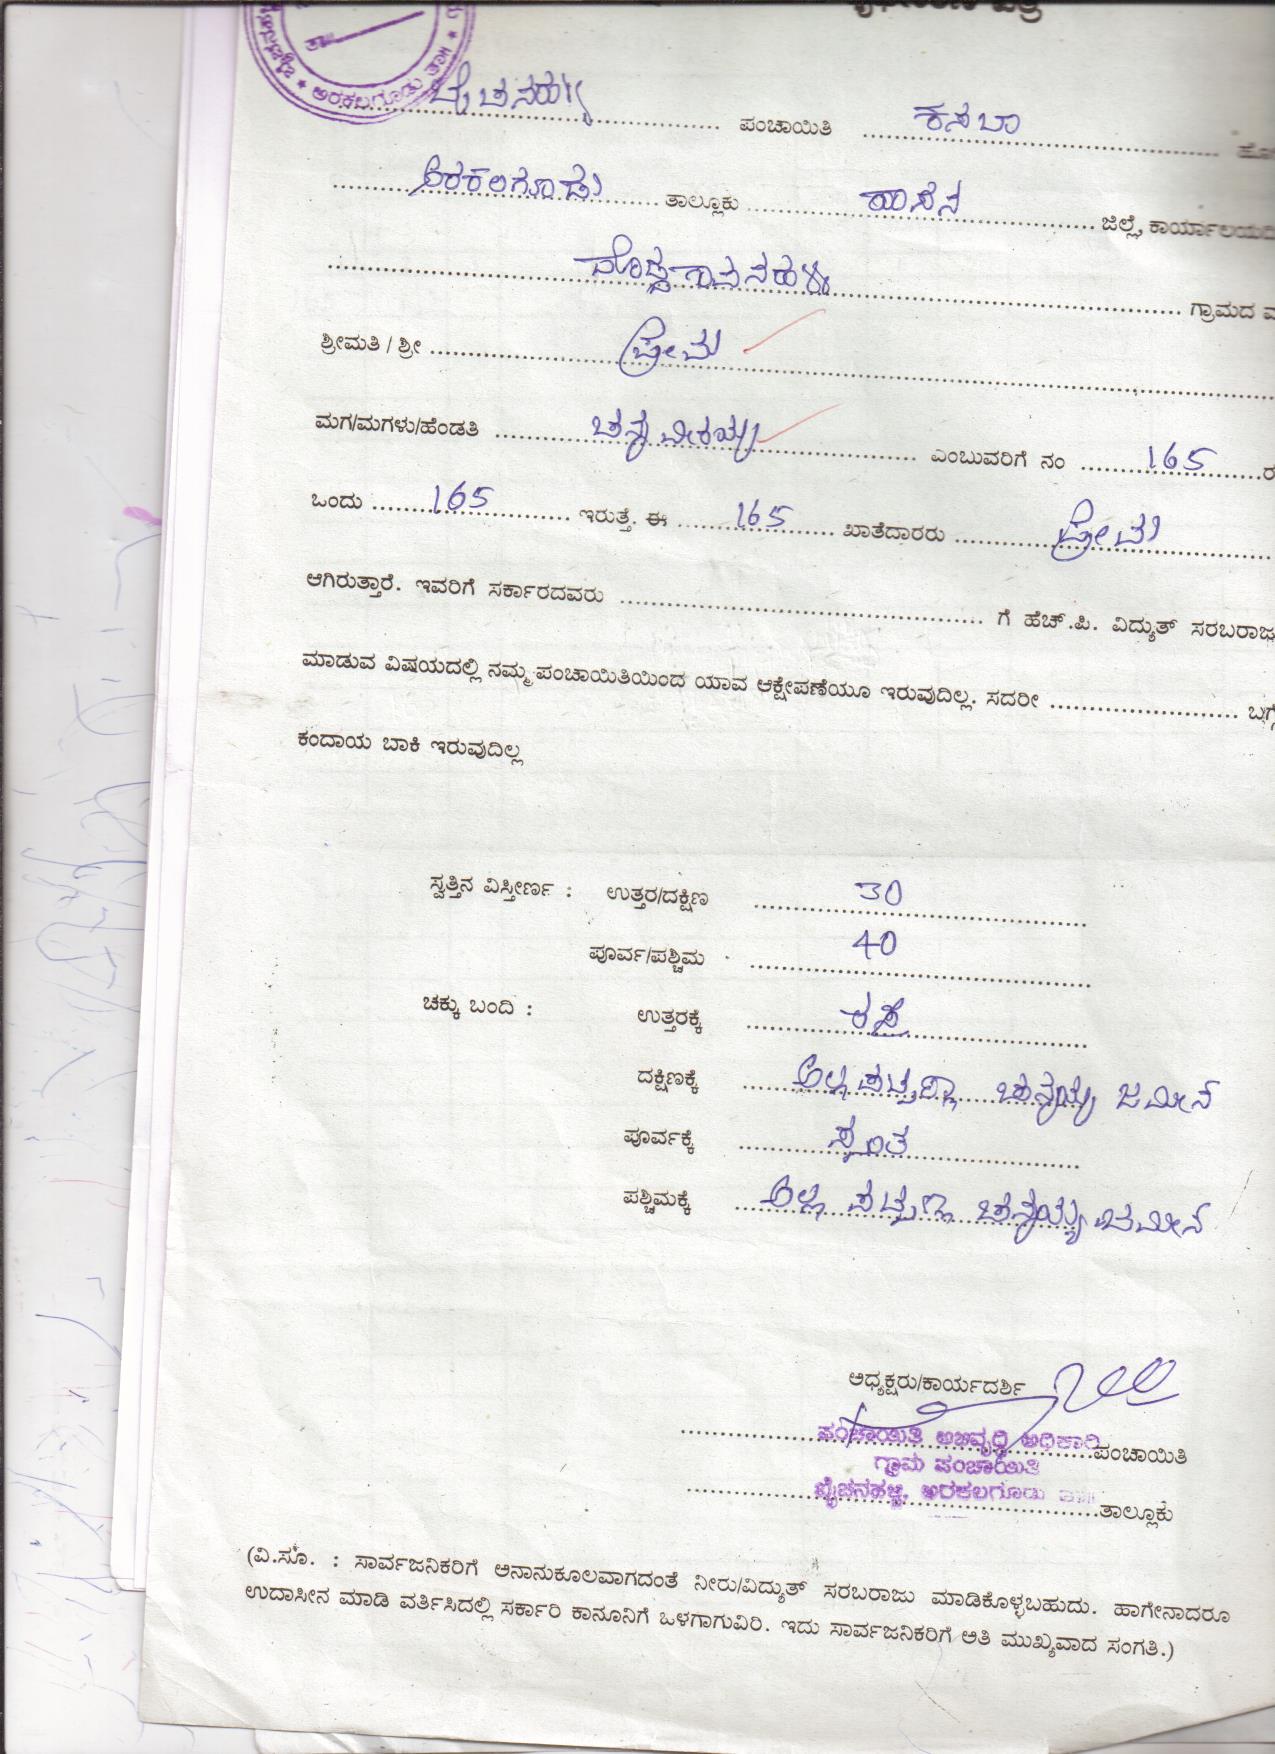 ತಾ॥
★ ಅರಕಲಗೂಡು ತಾ॥ ★
ಬೈಚನಹಳ್ಳಿ ಪಂಚಾಯಿತಿ ಕಸಬಾ
ಅರಕಲಗೂಡು ತಾಲ್ಲೂಕು ಹಾಸನ ಜಿಲ್ಲೆ, ಕಾರ್ಯಾಲಯದಿ
ದೊಡ್ಡಗಾವನಹಳ್ಳಿ ಗ್ರಾಮದ
ಶ್ರೀಮತಿ / ಶ್ರೀ ಪ್ರೇಮ
ಮಗ/ಮಗಳು/ಹೆಂಡತಿ ಚನ್ನವೀರಯ್ಯ ಎಂಬುವರಿಗೆ ನಂ 165 ರ
ಒಂದು 165 ಇರುತ್ತೆ. ಈ 165 ಖಾತೆದಾರರು ಪ್ರೇಮ
ಆಗಿರುತ್ತಾರೆ. ಇವರಿಗೆ ಸರ್ಕಾರದವರು ಗೆ ಹೆಚ್.ಪಿ. ವಿದ್ಯುತ್ ಸರಬರಾಜು
ಮಾಡುವ ವಿಷಯದಲ್ಲಿ ನಮ್ಮ ಪಂಚಾಯಿತಿಯಿಂದ ಯಾವ ಆಕ್ಷೇಪಣೆಯೂ ಇರುವುದಿಲ್ಲ. ಸದರೀ ಬಗ್ಗೆ
ಕಂದಾಯ ಬಾಕಿ ಇರುವುದಿಲ್ಲ
ಸ್ವತ್ತಿನ ವಿಸ್ತೀರ್ಣ : ಉತ್ತರ/ದಕ್ಷಿಣ 30
ಪೂರ್ವ/ಪಶ್ಚಿಮ 40
ಚಕ್ಕು ಬಂದಿ : ಉತ್ತರಕ್ಕೆ ರಸ್ತೆ
ದಕ್ಷಿಣಕ್ಕೆ ಚನ್ನಯ್ಯ ಜಮೀನ್
ಪೂರ್ವಕ್ಕೆ ಸ್ವಂತ
ಪಶ್ಚಿಮಕ್ಕೆ ಚನ್ನಯ್ಯ ಜಮೀನ್
ಅಧ್ಯಕ್ಷರು/ಕಾರ್ಯದರ್ಶಿ
ಪಂಚಾಯಿತಿ ಅಭಿವೃದ್ಧಿ ಅಧಿಕಾರಿ ಪಂಚಾಯಿತಿ
ಗ್ರಾಮ ಪಂಚಾಯಿತಿ
ಬೈಚನಹಳ್ಳಿ, ಅರಕಲಗೂಡು ತಾ॥ ತಾಲ್ಲೂಕು
(ವಿ.ಸೂ. : ಸಾರ್ವಜನಿಕರಿಗೆ ಅನಾನುಕೂಲವಾಗದಂತೆ ನೀರು/ವಿದ್ಯುತ್ ಸರಬರಾಜು ಮಾಡಿಕೊಳ್ಳಬಹುದು. ಹಾಗೇನಾದರೂ
ಉದಾಸೀನ ಮಾಡಿ ವರ್ತಿಸಿದಲ್ಲಿ ಸರ್ಕಾರಿ ಕಾನೂನಿಗೆ ಒಳಗಾಗುವಿರಿ. ಇದು ಸಾರ್ವಜನಿಕರಿಗೆ ಅತಿ ಮುಖ್ಯವಾದ ಸಂಗತಿ.)